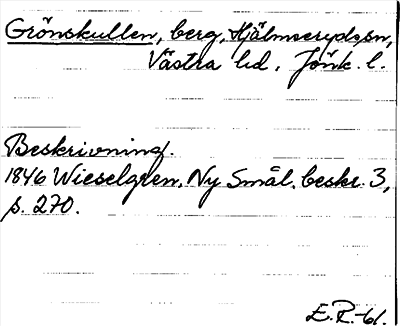 Grönskullen, berg, Hjälmseryds sn,
Västra hd. Jönk. l.
Beskrivning.
1846 Wieselgren, Ny Smål. beskr. 3,
s. 270.
E.R.-61.